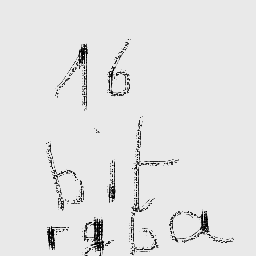 16
bit
rgba